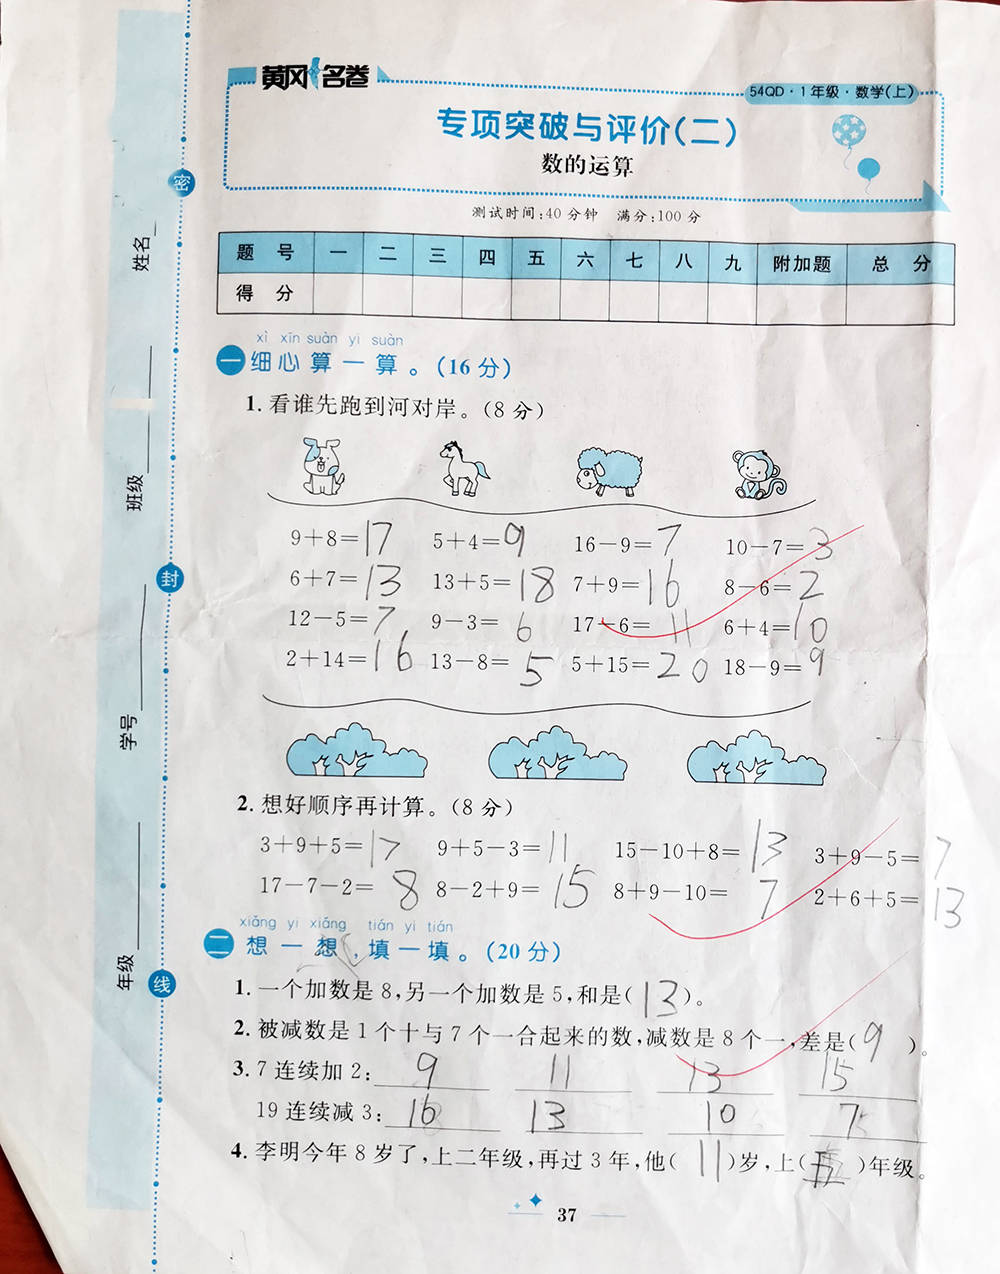 黄冈名卷
54QD·1年级·数学(上)
专项突破与评价(二)
数的运算
测试时间:40分钟 满分:100分
题号 一 二 三 四 五 六 七 八 九 附加题 总分
得分
xì xīn suàn yi suàn
一 细心算一算。(16分)
1.看谁先跑到河对岸。(8分)
9+8=17 5+4=9 16-9=7 10-7=3
6+7=13 13+5=18 7+9=16 8-6=2
12-5=7 9-3=6 17-6=11 6+4=10
2+14=16 13-8=5 5+15=20 18-9=9
2.想好顺序再计算。(8分)
3+9+5=17 9+5-3=11 15-10+8=13 3+9-5=7
17-7-2=8 8-2+9=15 8+9-10=7 2+6+5=13
xiǎng yi xiǎng tián yi tián
二 想一想,填一填。(20分)
1.一个加数是8,另一个加数是5,和是(13)。
2.被减数是1个十与7个一合起来的数,减数是8个一,差是(9)。
3.7连续加2: 9 11 13 15
19连续减3: 16 13 10 7
4.李明今年8岁了,上二年级,再过3年,他(11)岁,上(五)年级。
37
姓名
班级
学号
年级
密
封
线